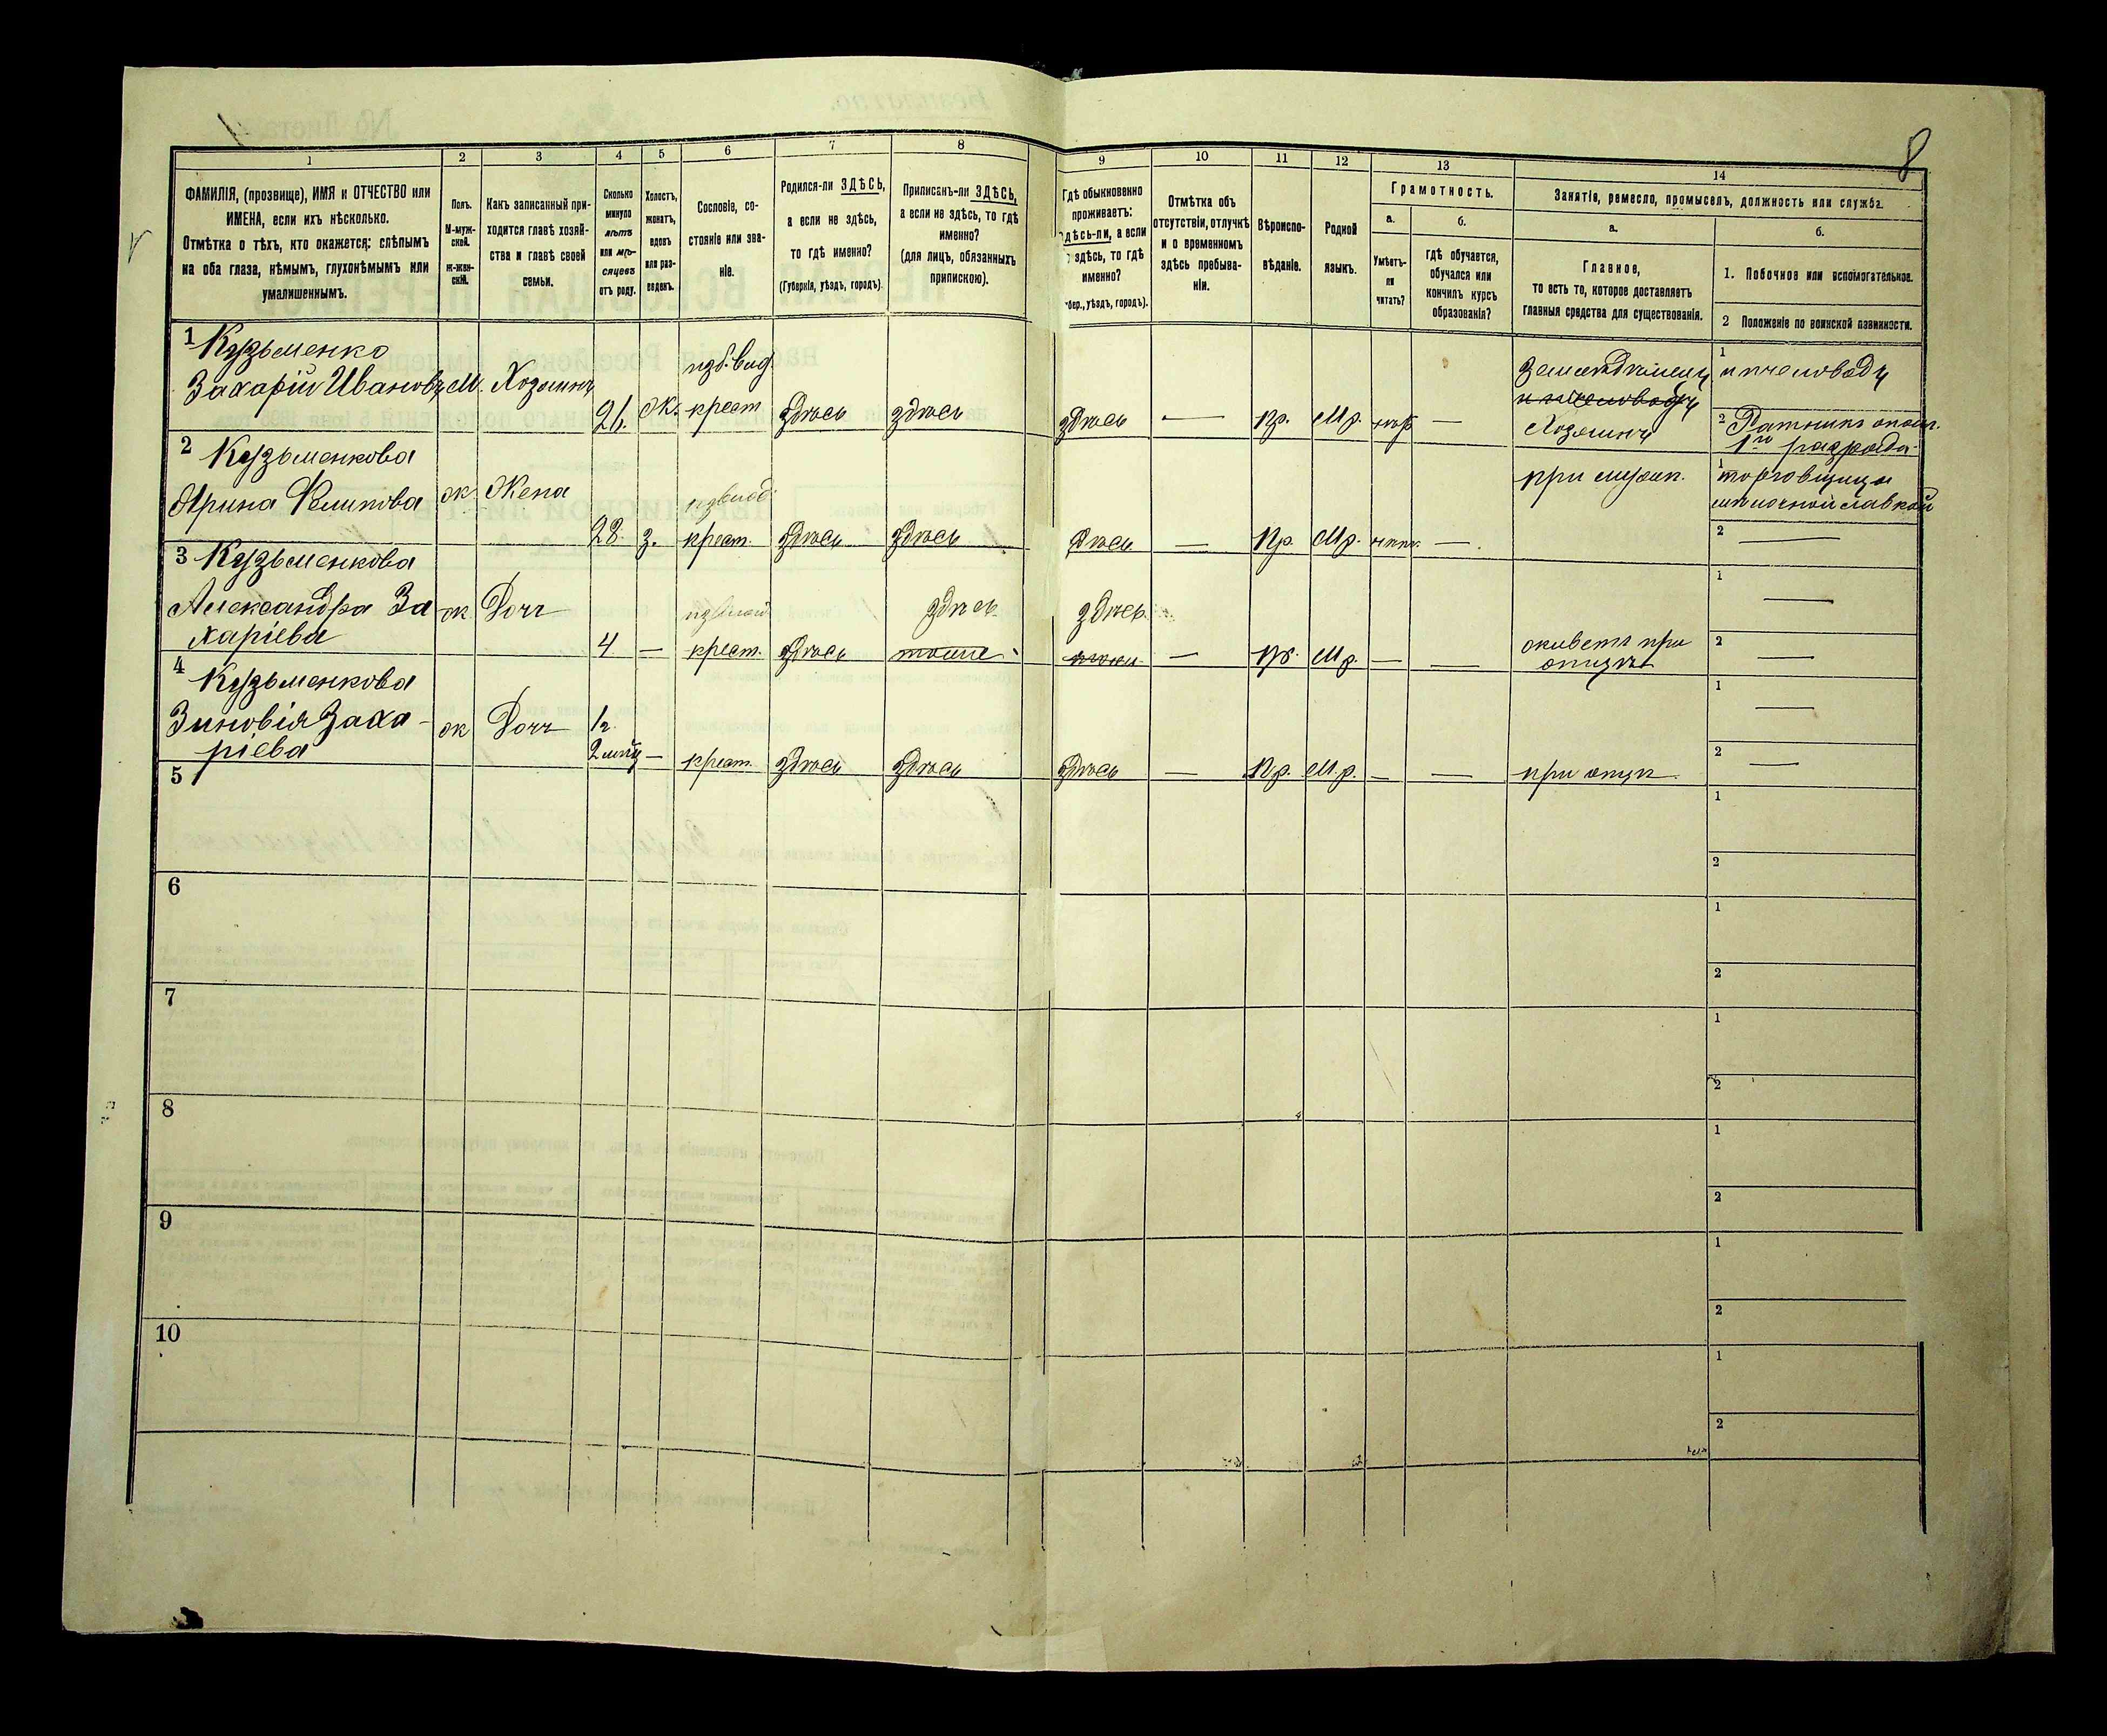 8
1 2 3 4 5 6 7 8 9 10 11 12 13 14
ФАМИЛІЯ, (прозвище), ИМЯ и ОТЧЕСТВО или
ИМЕНА, если ихъ нѣсколько.
Отмѣтка о тѣхъ, кто окажется: слѣпымъ
на оба глаза, нѣмымъ, глухонѣмымъ или
умалишеннымъ.
Полъ.
М-муж-
ской.
ж-жен-
скій.
Какъ записанный при-
ходится главѣ хозяй-
ства и главѣ своей
семьи.
Сколько
минуло
лѣтъ
или мѣ-
сяцевъ
отъ роду.
Холостъ,
женатъ,
вдовъ
или раз-
веденъ.
Сословіе, со-
стояніе или зва-
ніе.
Родился-ли ЗДѢСЬ,
а если не здѣсь,
то гдѣ именно?
(Губернія, уѣздъ, городъ).
Приписанъ-ли ЗДѢСЬ,
а если не здѣсь, то гдѣ
именно?
(для лицъ, обязанныхъ
припискою).
Гдѣ обыкновенно
проживаетъ:
здѣсь-ли, а если
не здѣсь, то гдѣ
именно?
(Губер., уѣздъ, городъ).
Отмѣтка объ
отсутствіи, отлучкѣ
и о временномъ
здѣсь пребыва-
ніи.
Вѣроиспо-
вѣданіе.
Родной
языкъ.
Грамотность.
а.
Умѣетъ-
ли
читать?
б.
гдѣ обучается,
обучался или
кончилъ курсъ
образованія?
Занятія, ремесло, промыселъ, должность или служба.
а.
Главное,
то есть то, которое доставляетъ
главныя средства для существованія.
б.
1. Побочное или вспомогательное.
2 Положеніе по воинской повинности.
1 Кузьменко
Захарій Ивановъ М. Хозяинъ
крест здѣсь здѣсь здѣсь — Пр. Мр. —
Земледѣлецъ
и пчеловодъ
Хозяинъ
1 и пчеловодъ
2 Ратникъ опол.
1го разряда
2 Кузьменкова
Ирина Филипова ж Жена
28. з. крест. здѣсь здѣсь здѣсь — Пр. Мр. —
при муж.
1 торговщица
мелочной лавкой
2 —
3 Кузьменкова
Александра За
харіева
ж Дочь
здѣсь здѣсь
4 — крест. здѣсь тоже — пр. Мр. — —
живетъ при
отцѣ
1 —
2 —
4 Кузьменкова
Зиновія Заха-
ріева
ж Дочь
— крест. здѣсь здѣсь здѣсь — Пр. Мр. — —
при отцѣ
1 —
2 —
5 1
2
6 1
2
7 1
2
8 1
2
9 1
2
10 1
2